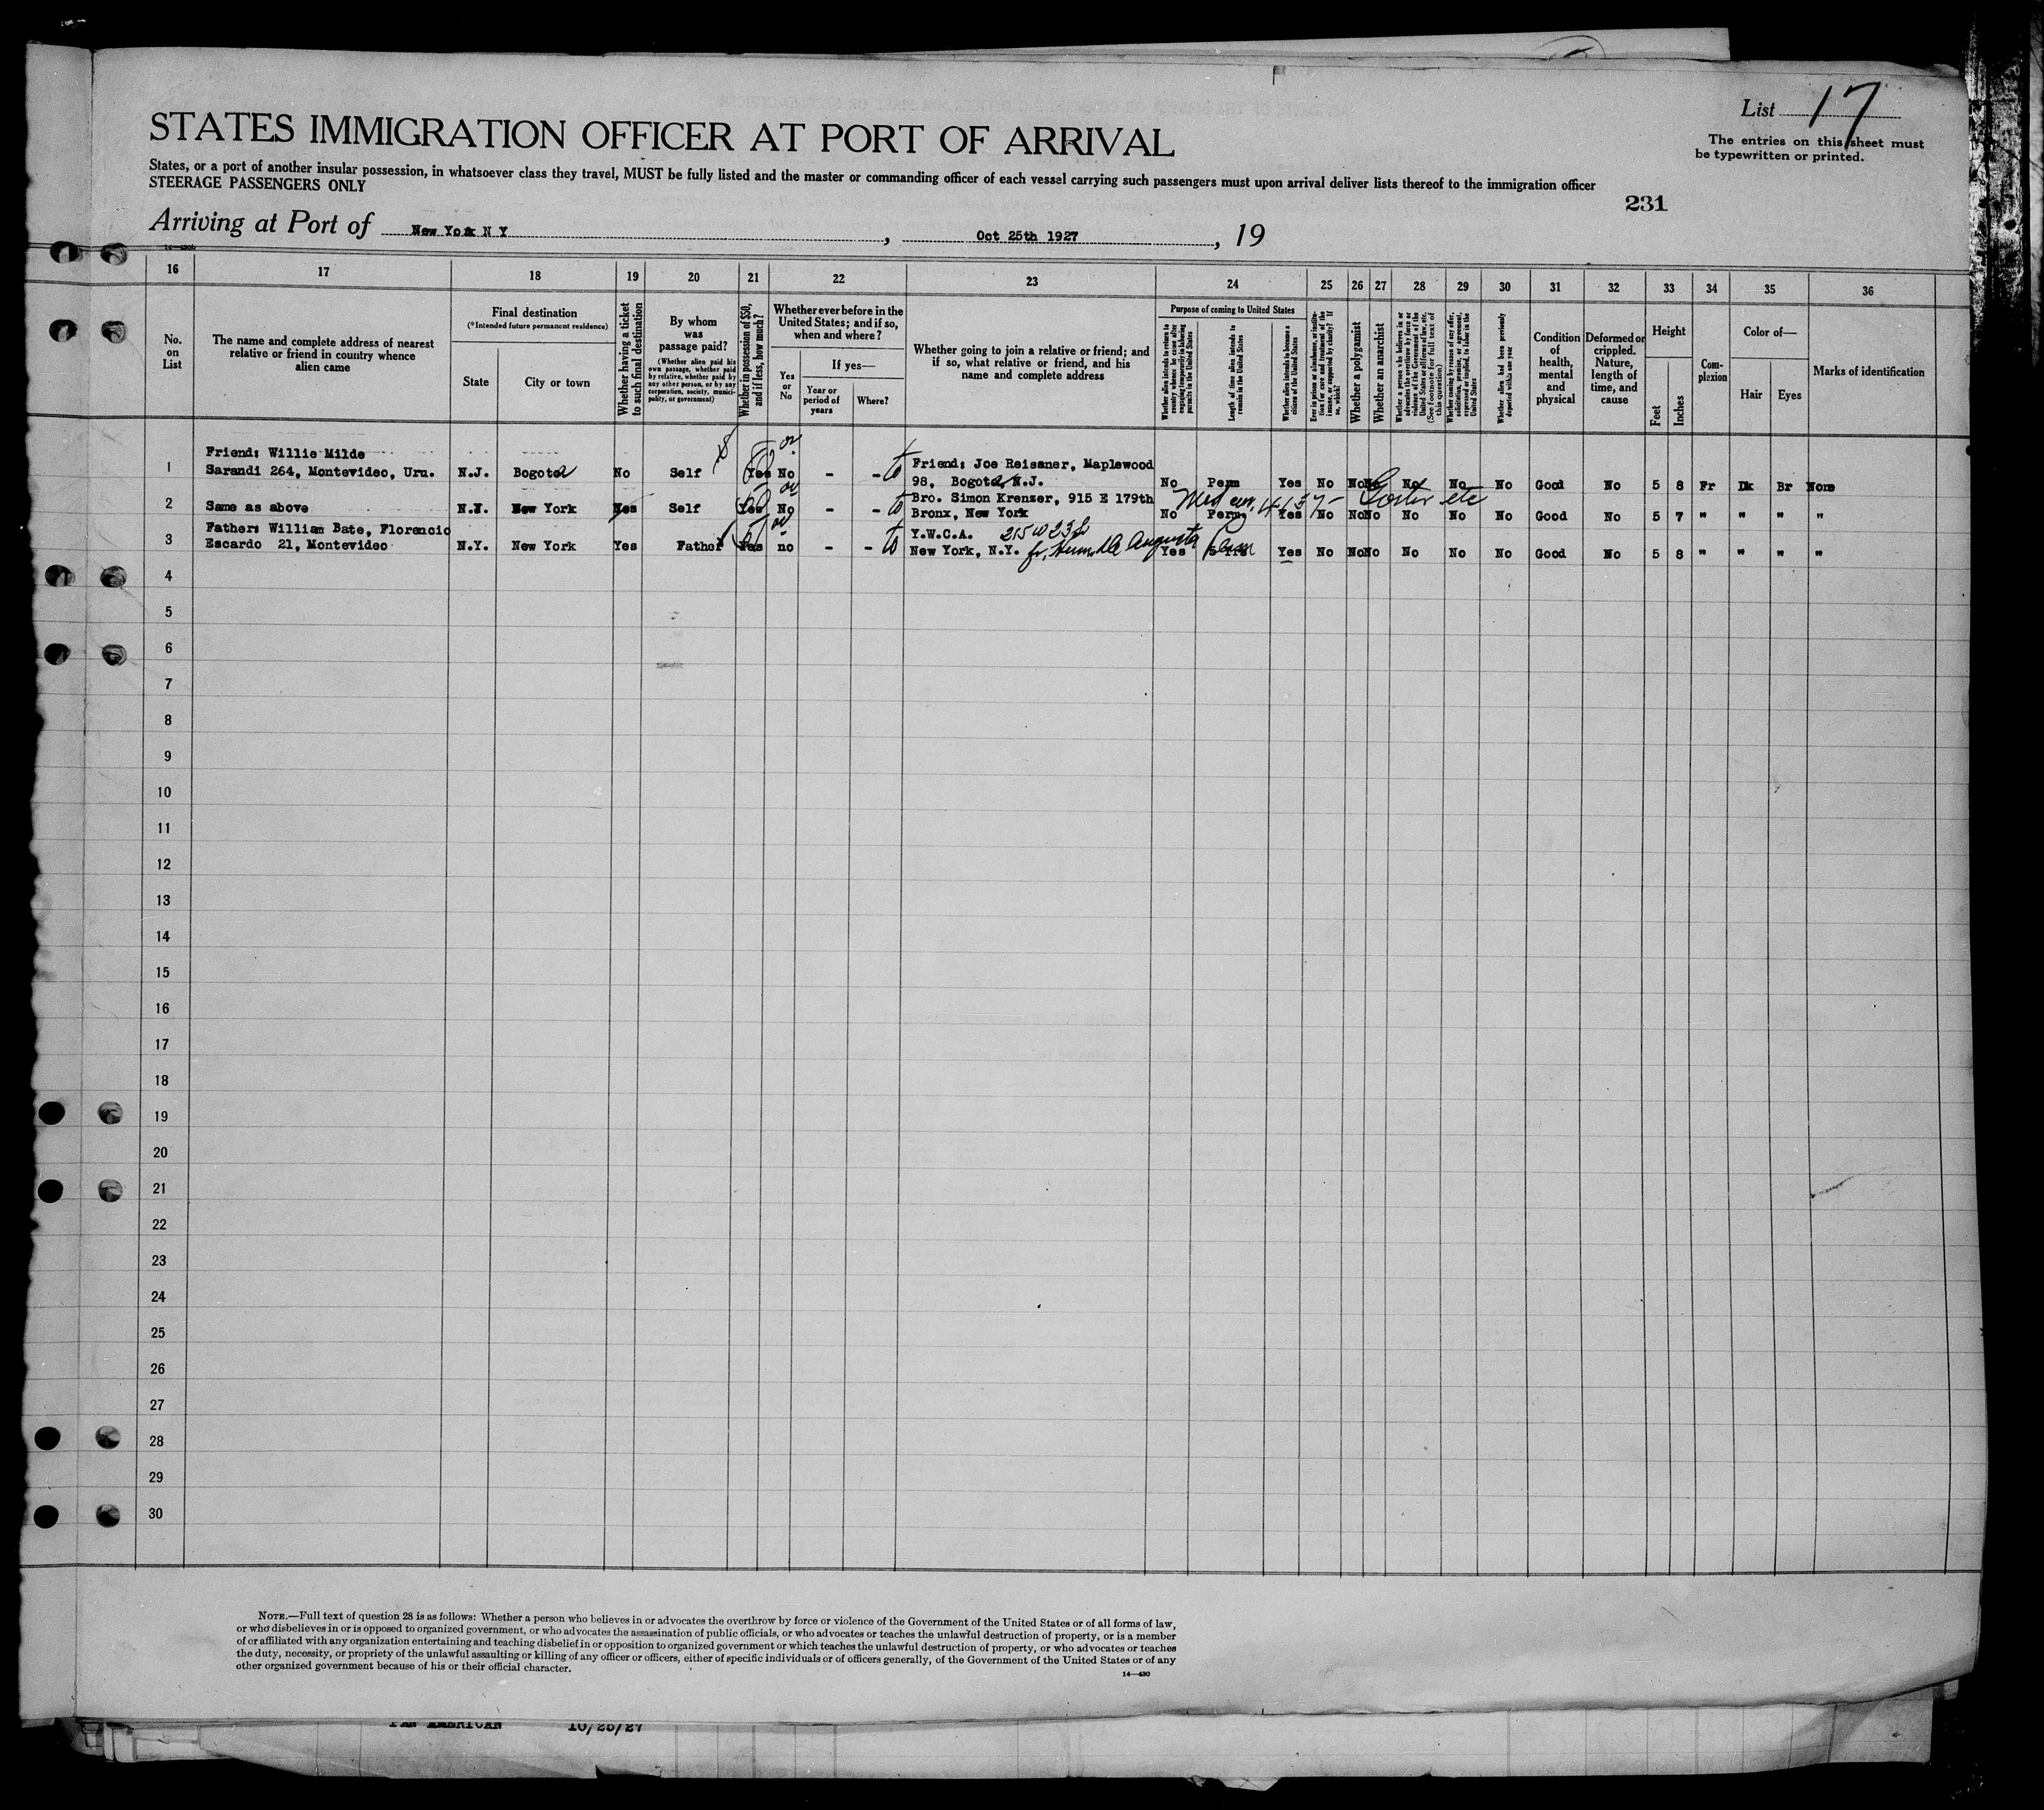 List 17
The entries on this sheet must
be typewritten or printed.
STATES IMMIGRATION OFFICER AT PORT OF ARRIVAL
States, or a port of another insular possession, in whatsoever class they travel, MUST be fully listed and the master or commanding officer of each vessel carrying such passengers must upon arrival deliver lists thereof to the immigration officer
STEERAGE PASSENGERS ONLY
231
Arriving at Port of New York N Y, Oct 25th 1927, 19
16 17 18 19 20 21 22 23 24 25 26 27 28 29 30 31 32 33 34 35 36
No.
on
List
The name and complete address of nearest
relative or friend in country whence
alien came
Final destination
(*Intended future permanent residence)
State
City or town
Whether having a ticket
to such final destination
By whom
was
passage paid?
(Whether alien paid his
own passage, whether paid
by relative, whether paid by
any other person, or by any
corporation, society, munici-
pality, or government)
Whether in possession of $50,
and if less, how much?
Whether ever before in the
United States; and if so,
when and where?
Yes
or
No
If yes—
Year or
period of
years
Where?
Whether going to join a relative or friend; and
if so, what relative or friend, and his
name and complete address
Purpose of coming to United States
Whether alien intends to return to
country whence he came after
engaging temporarily in laboring
pursuits in the United States
Length of time alien intends to
remain in the United States
Whether alien intends to become a
citizen of the United States
Ever in prison or almshouse, or institu-
tion for care and treatment of the
insane, or supported by charity? If
so, which?
Whether a polygamist
Whether an anarchist
Whether a person who believes in or
advocates the overthrow by force or
violence of the Government of the
United States or all forms of law, etc.
(See footnote for full text of
this question)
Whether coming by reason of any offer,
solicitation, promise, or agreement,
expressed or implied, to labor in the
United States
Whether alien had been previously
deported within one year
Condition
of
health,
mental
and
physical
Deformed or
crippled.
Nature,
length of
time, and
cause
Height
Feet
Inches
Com-
plexion
Color of—
Hair
Eyes
Marks of identification
Friend: Willie Milde
1 Sarandi 264, Montevideo, Uru. N.J. Bogota No Self Yes No - - to Friend: Joe Reissner, Maplewood
98, Bogota N.J. No Perm Yes No No No No No No Good No 5 8 Fr Dk Br None
2 Same as above N.Y. New York Yes Self Yes No - - to Bro. Simon Krenzer, 915 E 179th
Bronx, New York No Perm. Yes No No No No No No Good No 5 7 " " " "
Father: William Bate, Florencio
3 Escardo 21, Montevideo N.Y. New York Yes Father Yes no - - to Y.W.C.A. 215 W 23
New York, N.Y. Augusta Yes Yes No No No No No No Good No 5 8 " " " "
4
5
6
7
8
9
10
11
12
13
14
15
16
17
18
19
20
21
22
23
24
25
26
27
28
29
30
NOTE.—Full text of question 28 is as follows: Whether a person who believes in or advocates the overthrow by force or violence of the Government of the United States or of all forms of law,
or who disbelieves in or is opposed to organized government, or who advocates the assassination of public officials, or who advocates or teaches the unlawful destruction of property, or is a member
of or affiliated with any organization entertaining and teaching disbelief in or opposition to organized government or which teaches the unlawful destruction of property, or who advocates or teaches
the duty, necessity, or propriety of the unlawful assaulting or killing of any officer or officers, either of specific individuals or of officers generally, of the Government of the United States or of any
other organized government because of his or their official character.
14—430
PAN AMERICAN 10/25/27